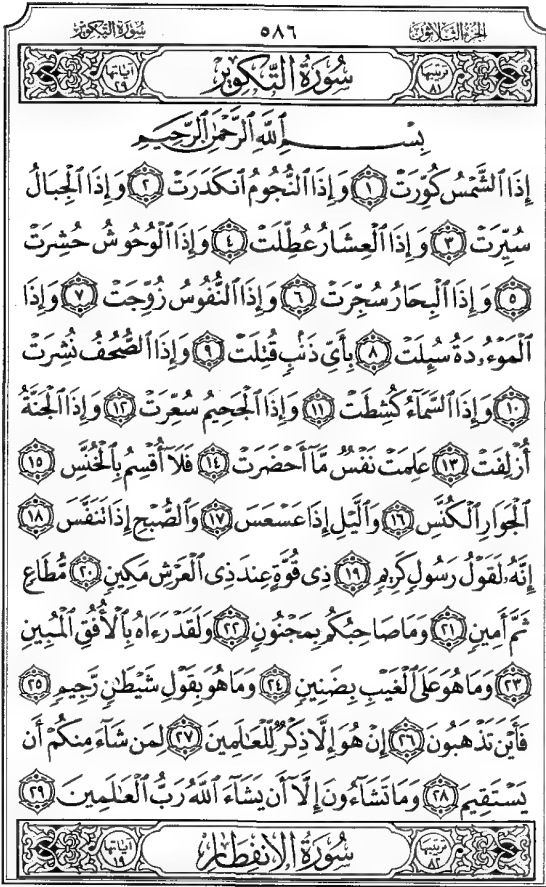 الجزء الثلاثون ٥٨٦ سورة التكوير
ترتيبها ٨١ سُورَةُ التَّكْوِيرِ آياتها ٢٩
بِسْمِ ٱللَّهِ ٱلرَّحْمَٰنِ ٱلرَّحِيمِ
إِذَا ٱلشَّمْسُ كُوِّرَتْ ١ وَإِذَا ٱلنُّجُومُ ٱنكَدَرَتْ ٢ وَإِذَا ٱلْجِبَالُ
سُيِّرَتْ ٣ وَإِذَا ٱلْعِشَارُ عُطِّلَتْ ٤ وَإِذَا ٱلْوُحُوشُ حُشِرَتْ
٥ وَإِذَا ٱلْبِحَارُ سُجِّرَتْ ٦ وَإِذَا ٱلنُّفُوسُ زُوِّجَتْ ٧ وَإِذَا
ٱلْمَوْءُۥدَةُ سُئِلَتْ ٨ بِأَىِّ ذَنۢبٍ قُتِلَتْ ٩ وَإِذَا ٱلصُّحُفُ نُشِرَتْ
١٠ وَإِذَا ٱلسَّمَآءُ كُشِطَتْ ١١ وَإِذَا ٱلْجَحِيمُ سُعِّرَتْ ١٢ وَإِذَا ٱلْجَنَّةُ
أُزْلِفَتْ ١٣ عَلِمَتْ نَفْسٌ مَّآ أَحْضَرَتْ ١٤ فَلَآ أُقْسِمُ بِٱلْخُنَّسِ ١٥
ٱلْجَوَارِ ٱلْكُنَّسِ ١٦ وَٱلَّيْلِ إِذَا عَسْعَسَ ١٧ وَٱلصُّبْحِ إِذَا تَنَفَّسَ ١٨
إِنَّهُۥ لَقَوْلُ رَسُولٍ كَرِيمٍ ١٩ ذِى قُوَّةٍ عِندَ ذِى ٱلْعَرْشِ مَكِينٍ ٢٠ مُّطَاعٍ
ثَمَّ أَمِينٍ ٢١ وَمَا صَاحِبُكُم بِمَجْنُونٍ ٢٢ وَلَقَدْ رَءَاهُ بِٱلْأُفُقِ ٱلْمُبِينِ
٢٣ وَمَا هُوَ عَلَى ٱلْغَيْبِ بِضَنِينٍ ٢٤ وَمَا هُوَ بِقَوْلِ شَيْطَٰنٍ رَّجِيمٍ ٢٥
فَأَيْنَ تَذْهَبُونَ ٢٦ إِنْ هُوَ إِلَّا ذِكْرٌ لِّلْعَٰلَمِينَ ٢٧ لِمَن شَآءَ مِنكُمْ أَن
يَسْتَقِيمَ ٢٨ وَمَا تَشَآءُونَ إِلَّآ أَن يَشَآءَ ٱللَّهُ رَبُّ ٱلْعَٰلَمِينَ ٢٩
ترتيبها ٨٢ سُورَةُ الِانْفِطَارِ آياتها ١٩